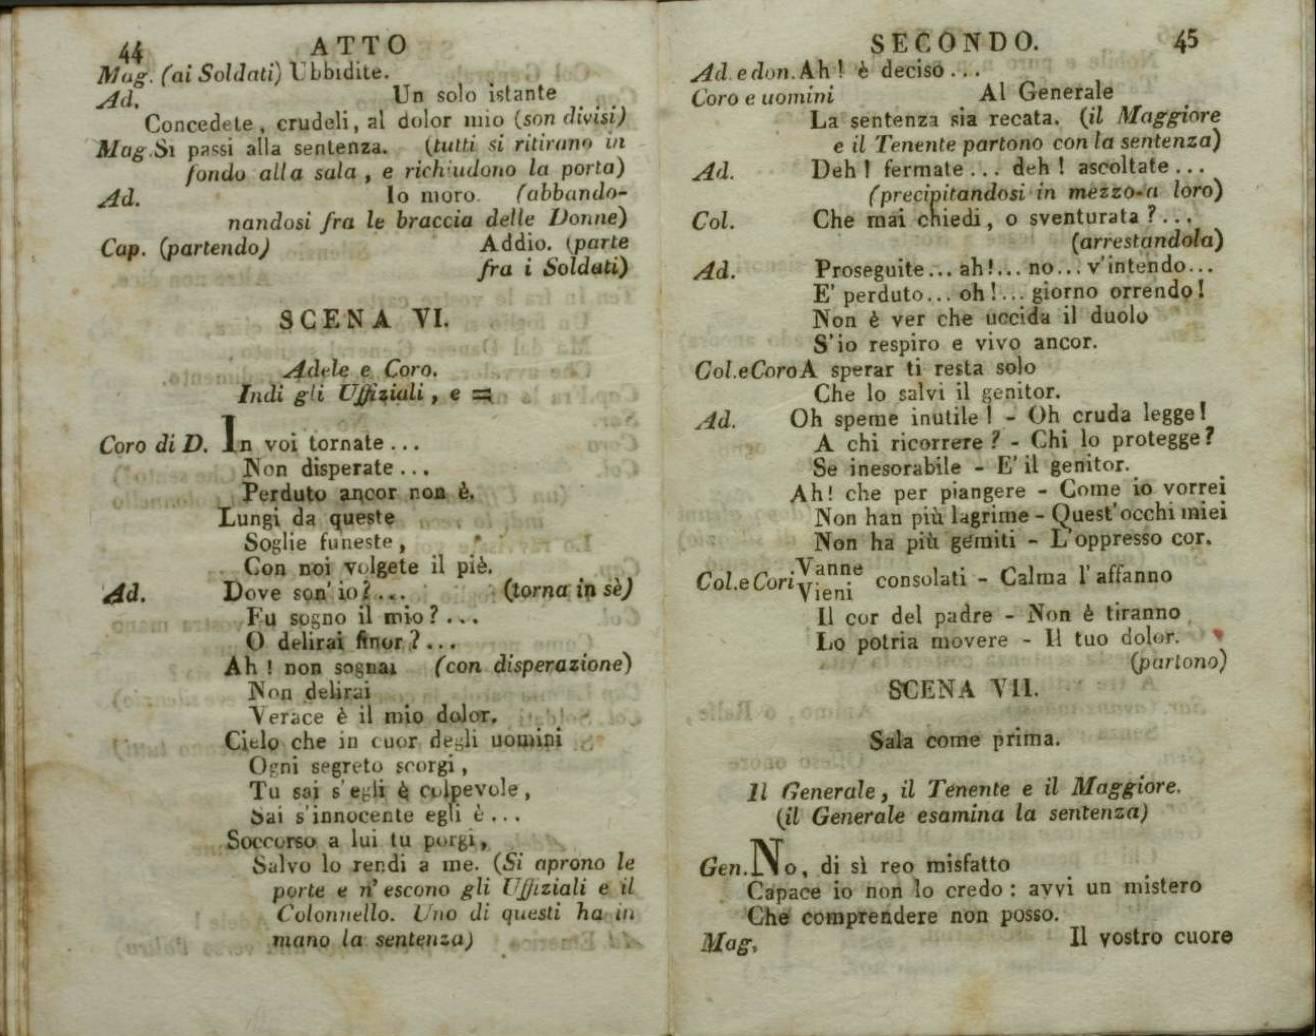 44 ATTO
Mag. (ai Soldati) Ubbidite.
Ad. Un solo istante
Concedete, crudeli, al dolor mio (son divisi)
Mag. Si passi alla sentenza. (tutti si ritirano in
fondo alla sala, e richiudono la porta)
Ad. Io moro. (abbando-
nandosi fra le braccia delle Donne)
Cap. (partendo) Addio. (parte
fra i Soldati)
SCENA VI.
Adele e Coro.
Indi gli Uffiziali, e =
Coro di D. In voi tornate...
Non disperate...
Perduto ancor non è.
Lungi da queste
Soglie funeste,
Con noi volgete il piè.
Ad. Dove son' io?... (torna in sè)
Fu sogno il mio?...
O delirai finor?...
Ah! non sognai (con disperazione)
Non delirai
Verace è il mio dolor.
Cielo che in cuor degli uomini
Ogni segreto scorgi,
Tu sai s'egli è colpevole,
Sai s'innocente egli è...
Soccorso a lui tu porgi,
Salvo lo rendi a me. (Si aprono le
porte e n'escono gli Uffiziali e il
Colonnello. Uno di questi ha in
mano la sentenza)
SECONDO. 45
Ad. e don. Ah! è deciso...
Coro e uomini Al Generale
La sentenza sia recata. (il Maggiore
e il Tenente partono con la sentenza)
Ad. Deh! fermate... deh! ascoltate...
(precipitandosi in mezzo a loro)
Col. Che mai chiedi, o sventurata?...
(arrestandola)
Ad. Proseguite... ah!... no... v'intendo...
E' perduto... oh!... giorno orrendo!
Non è ver che uccida il duolo
S'io respiro e vivo ancor.
Col. e Coro A sperar ti resta solo
Che lo salvi il genitor.
Ad. Oh speme inutile! - Oh cruda legge!
A chi ricorrere? - Chi lo protegge?
Se inesorabile - E' il genitor.
Ah! che per piangere - Come io vorrei
Non han più lagrime - Quest'occhi miei
Non ha più gemiti - L'oppresso cor.
Col. e Cori Vanne
Vieni consolati - Calma l'affanno
Il cor del padre - Non è tiranno
Lo potria movere - Il tuo dolor.
(partono)
SCENA VII.
Sala come prima.
Il Generale, il Tenente e il Maggiore.
(il Generale esamina la sentenza)
Gen. No, di sì reo misfatto
Capace io non lo credo: avvi un mistero
Che comprendere non posso.
Mag. Il vostro cuore